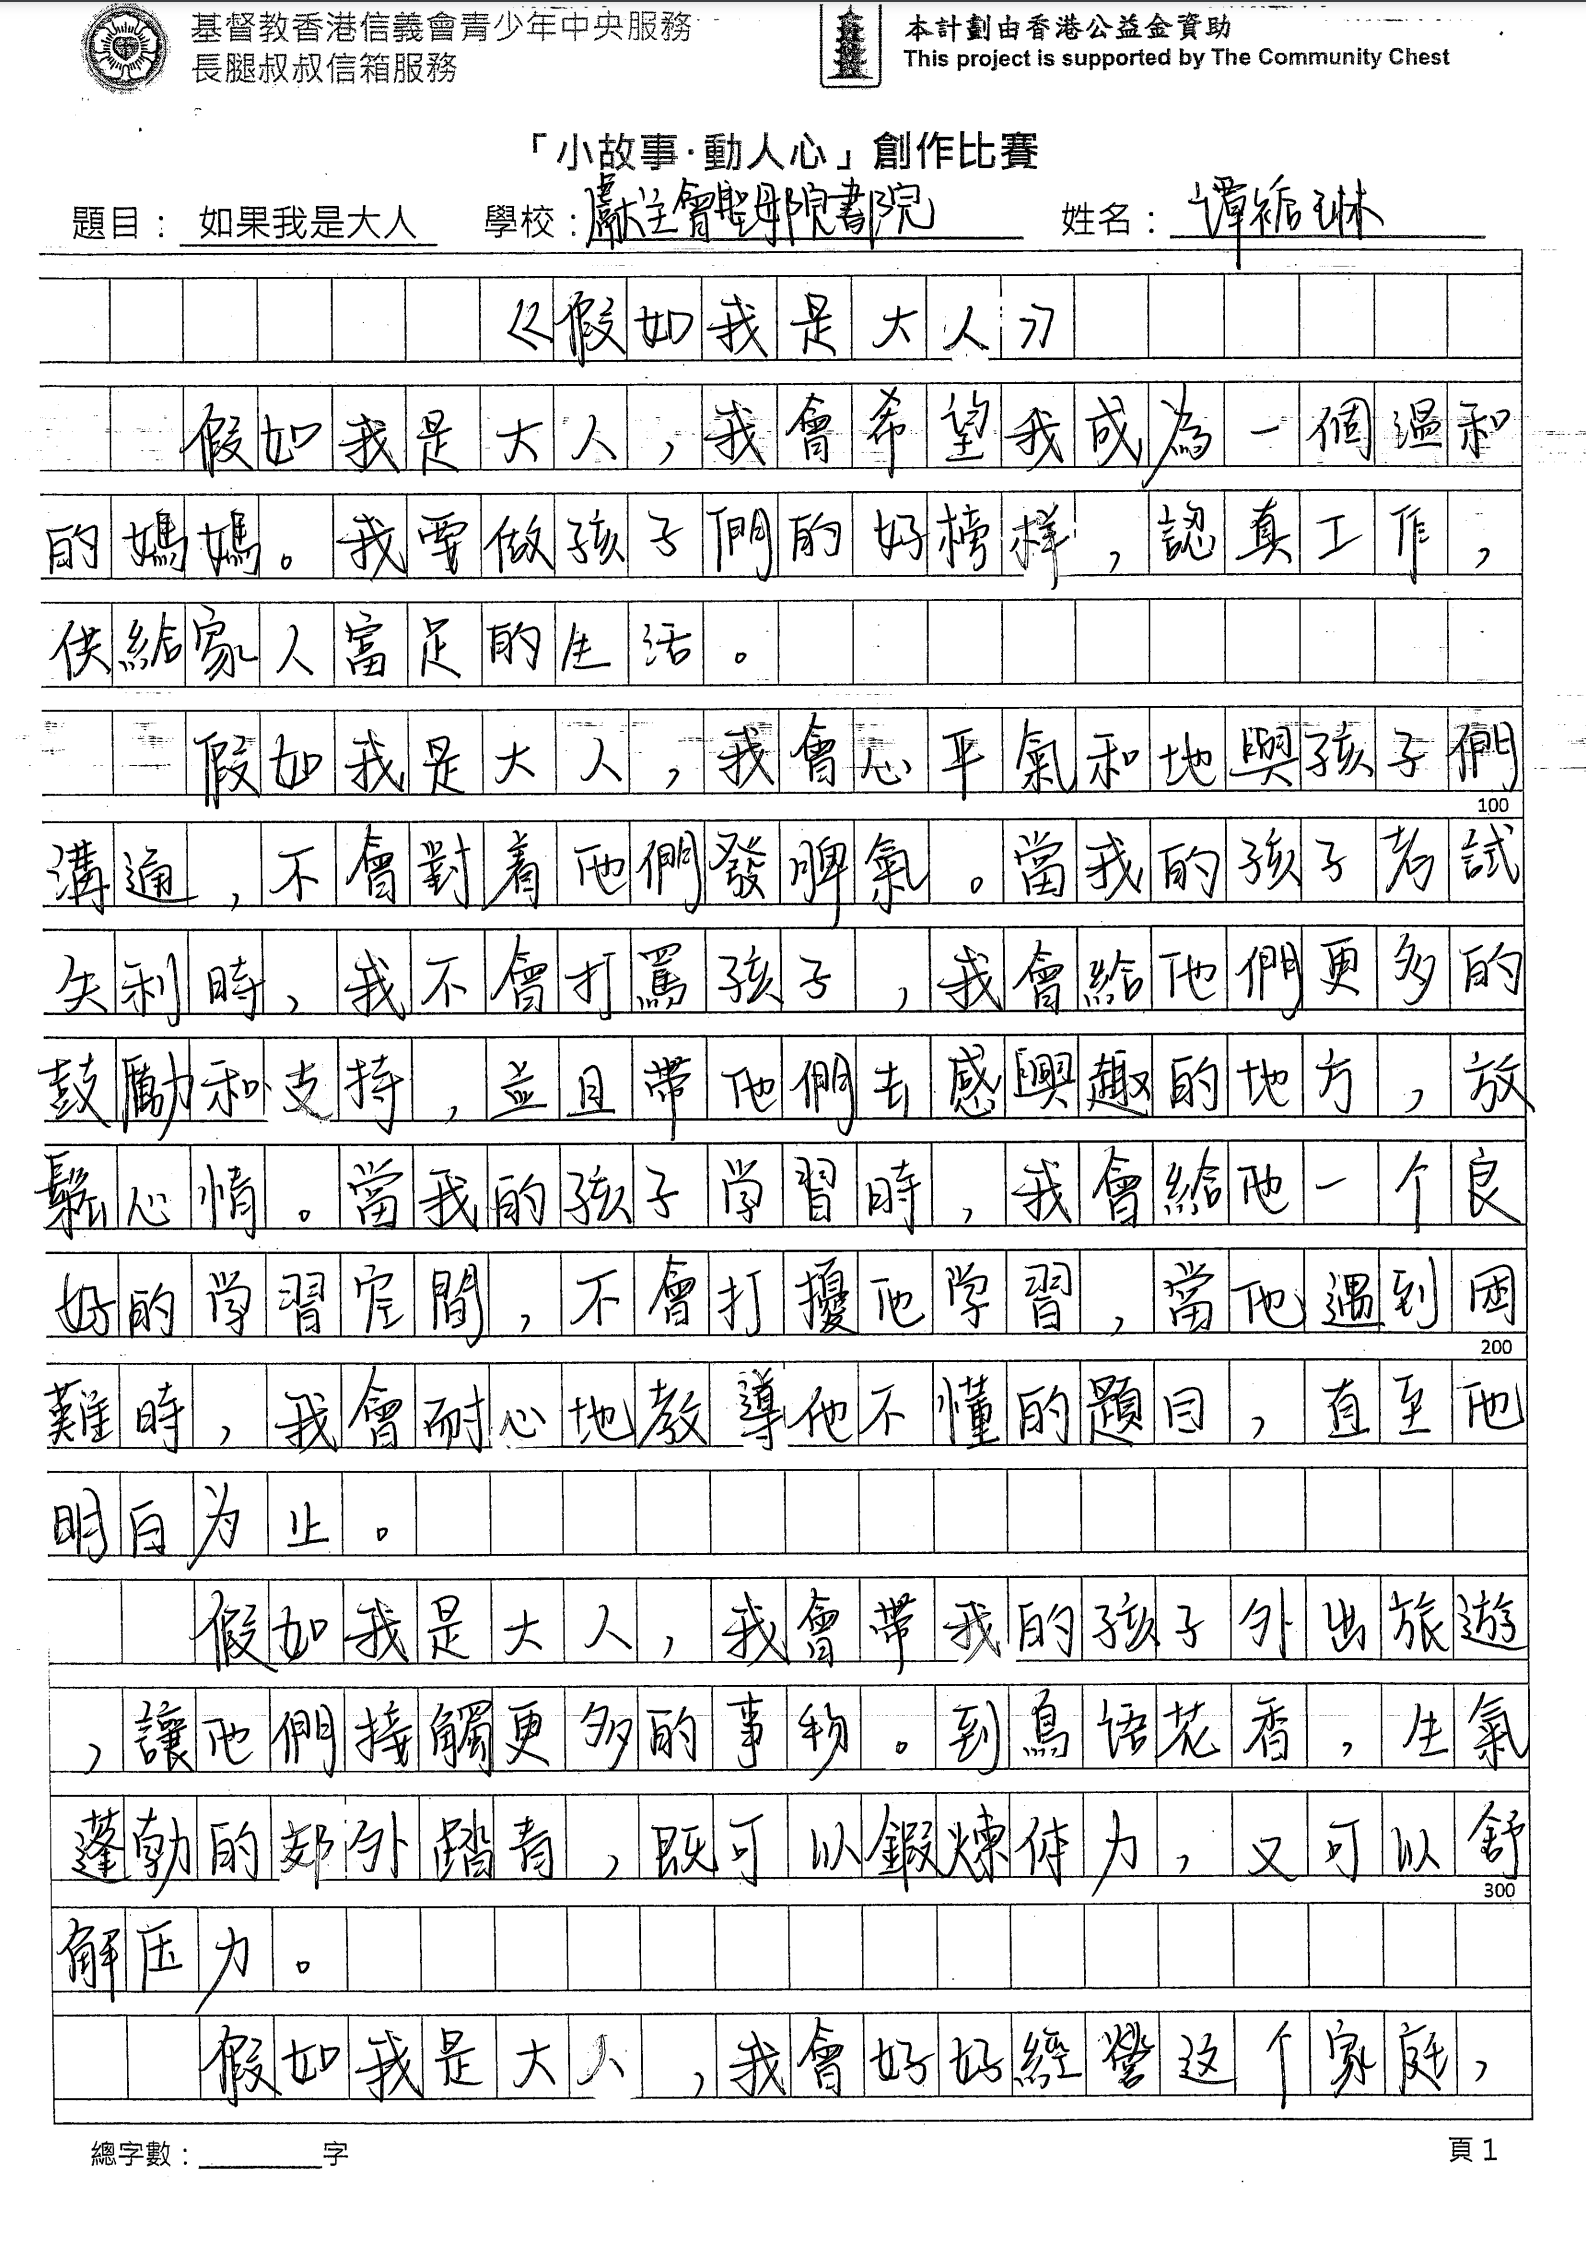 基督教香港信義會青少年中央服務
長腿叔叔信箱服務
本計劃由香港公益金資助
This project is supported by The Community Chest
「小故事·動人心」創作比賽
題目： 如果我是大人 學校：獻主會聖母院書院 姓名：譚祐琳
《假如我是大人》
假如我是大人，我會希望我成為一個溫和
的媽媽。我要做孩子們的好榜样，認真工作，
供給家人富足的生活。
假如我是大人，我會心平氣和地與孩子們
100
溝通，不會對着他們發脾氣。當我的孩子考試
失利時，我不會打罵孩子，我會給他們更多的
鼓勵和支持，並且帶他們去感興趣的地方，放
鬆心情。當我的孩子学習時，我會給他一个良
好的学習空間，不會打擾他学習，當他遇到困
200
難時，我會耐心地教導他不懂的題目，直至他
明白为止。
假如我是大人，我會帶我的孩子外出旅遊
，讓他們接觸更多的事物。到鳥语花香，生氣
蓬勃的郊外踏青，既可以鍛煉体力，又可以舒
300
解压力。
假如我是大人，我會好好經營这个家庭，
總字數：字
頁 1